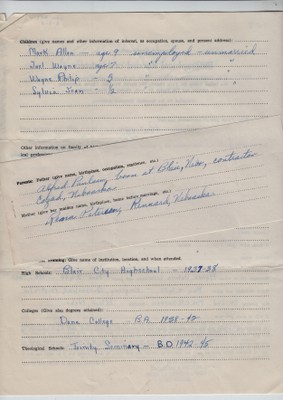 Children (give names and other information of interest, as occupation, spouse, and present address):
Mark Allen — age 9 unemployed - unmarried
Joel Wayne age 7 " "
Wayne Philip - 5 " "
Sylvia Jean - ½ "
Other information on family of
Parents: Father (give name, birthplace, occupation, residence, etc.)
Alfred Paulsen, born at Blair, Nebr, contractor
Nebraska
Mother (give her maiden name, birthplace, home before marriage, etc.)
Petersen, Kennard, Nebraska
Give name of institution, location, and when attended.
High School: Blair City Highschool - 1937-38
Colleges (Give also degrees obtained):
Dana College B.A. 1938-42
Theological Schools: Trinity Seminary - B.D. 1942-45